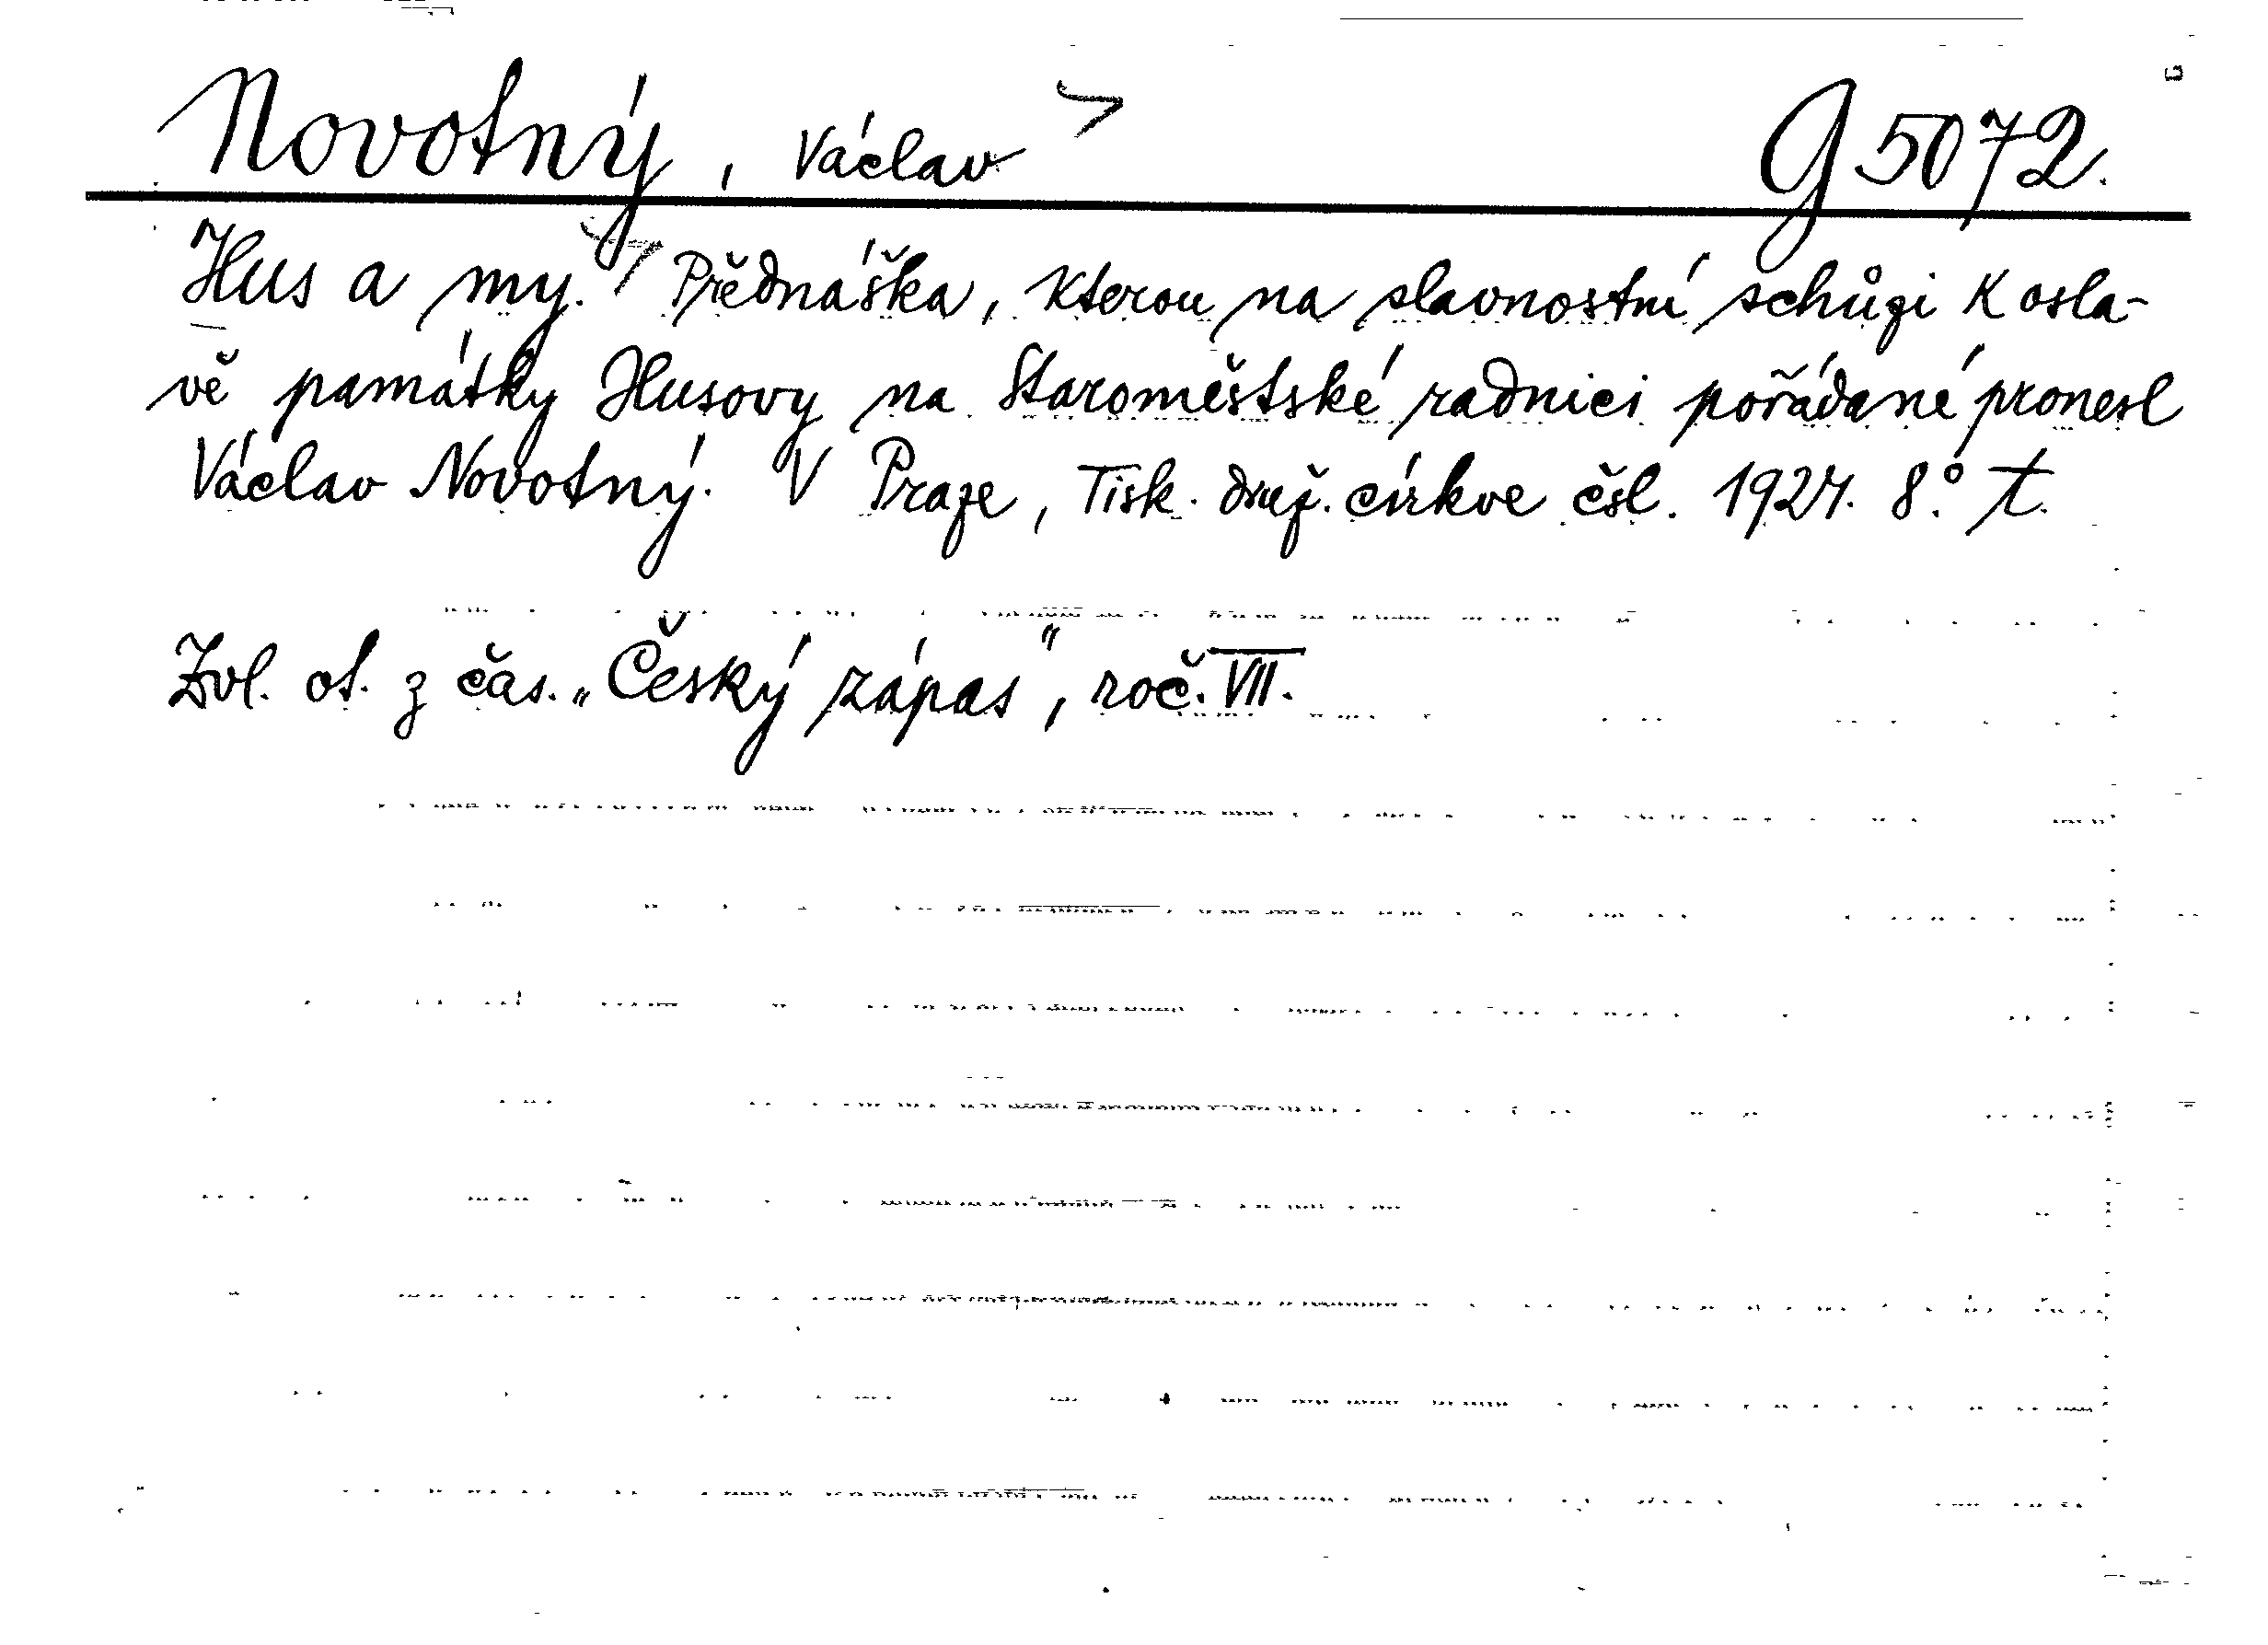 Novotný, Václav G 5072.
Hus a my. Přednáška, kterou na slavnostní schůzi k osla-
vě památky Husovy na Staroměstské radnici pořádané pronesl
Václav Novotný. V Praze, Tisk. druž. církve čsl. 1924. 8.° t.
Zvl. ot. z čas. „Český zápas", roč. VII.